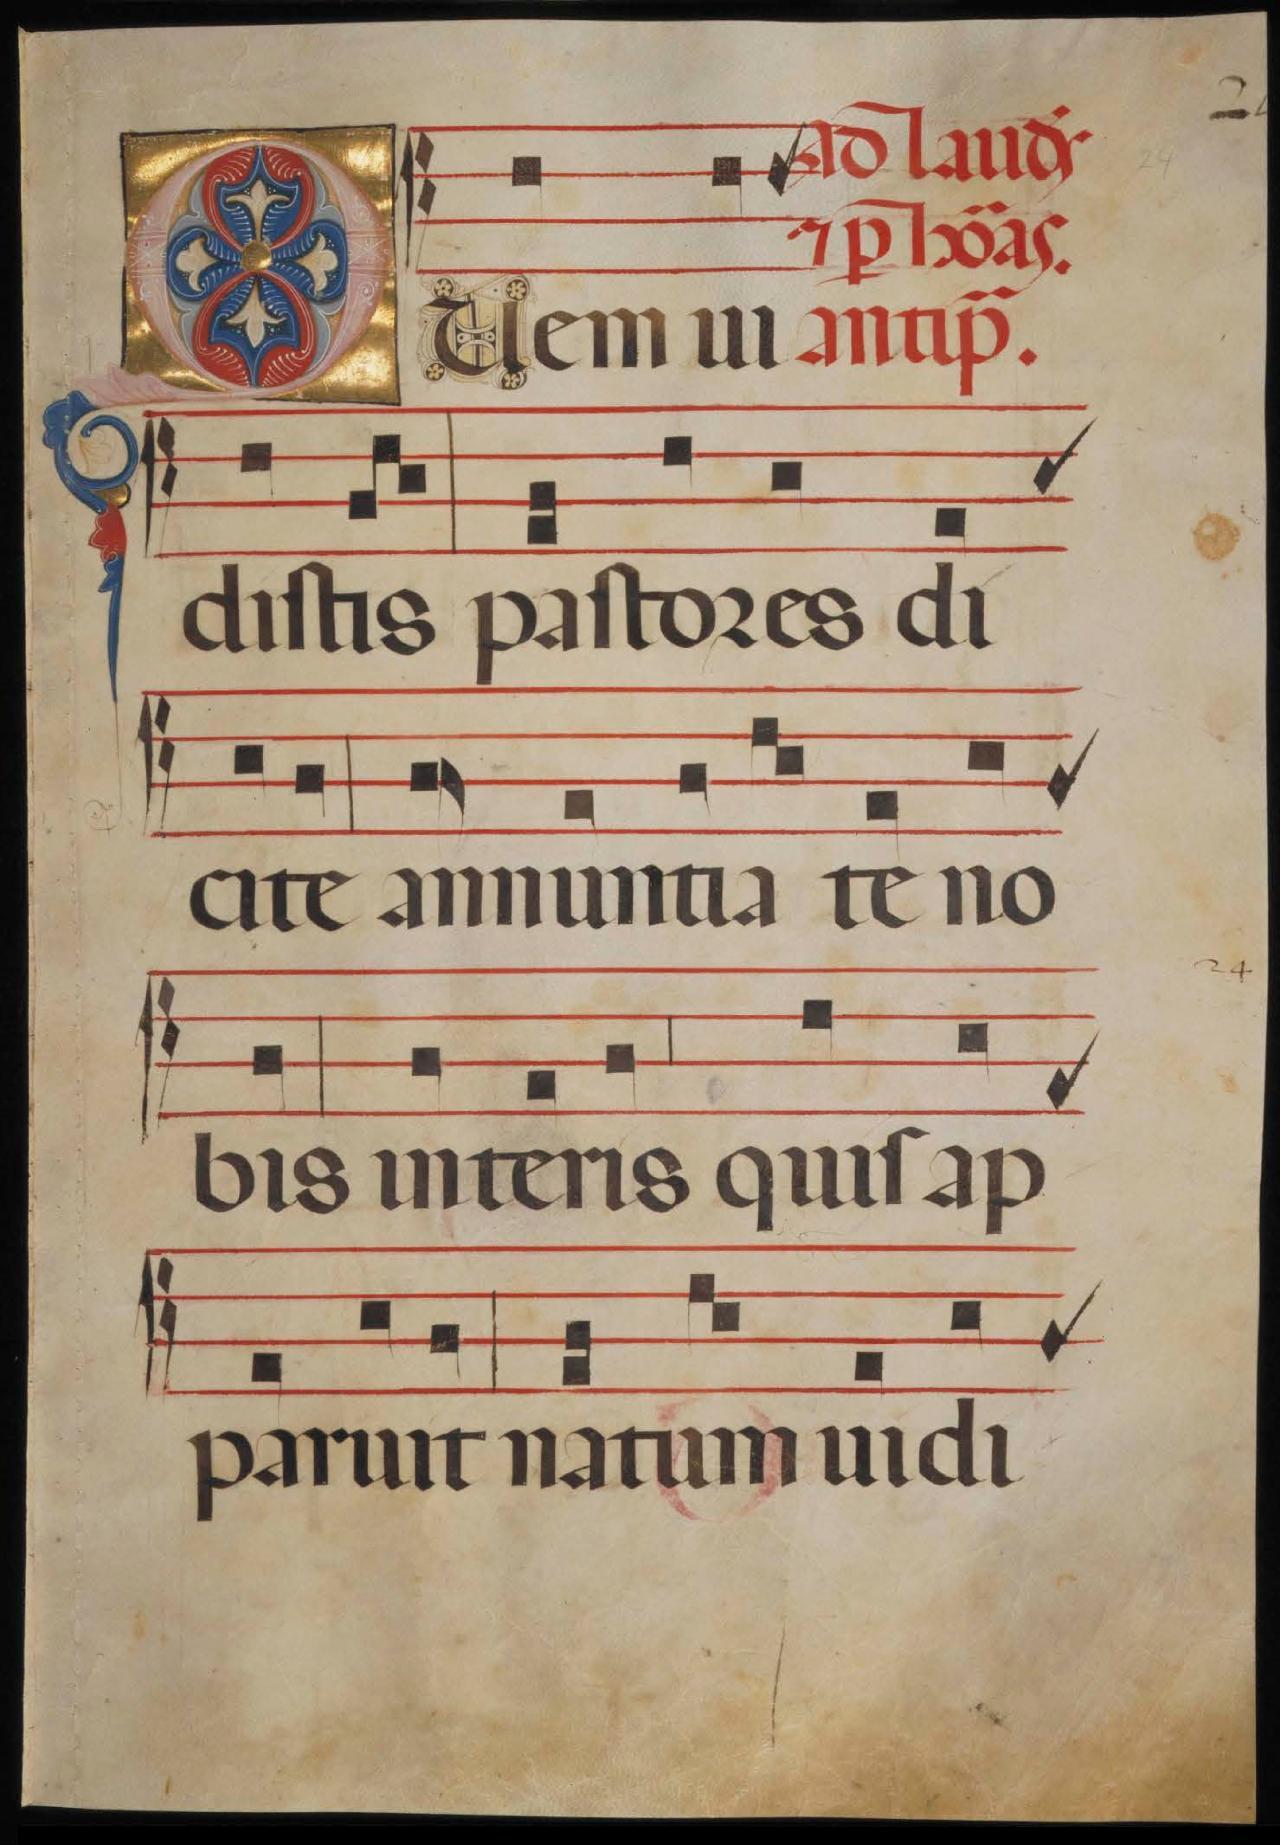 ad laudes
⁊ p̱ horas.
QUem ui antip̄.
distis pastores di
cite annuntia te no
bis interis quis ap
paruit natum uidi
24
24